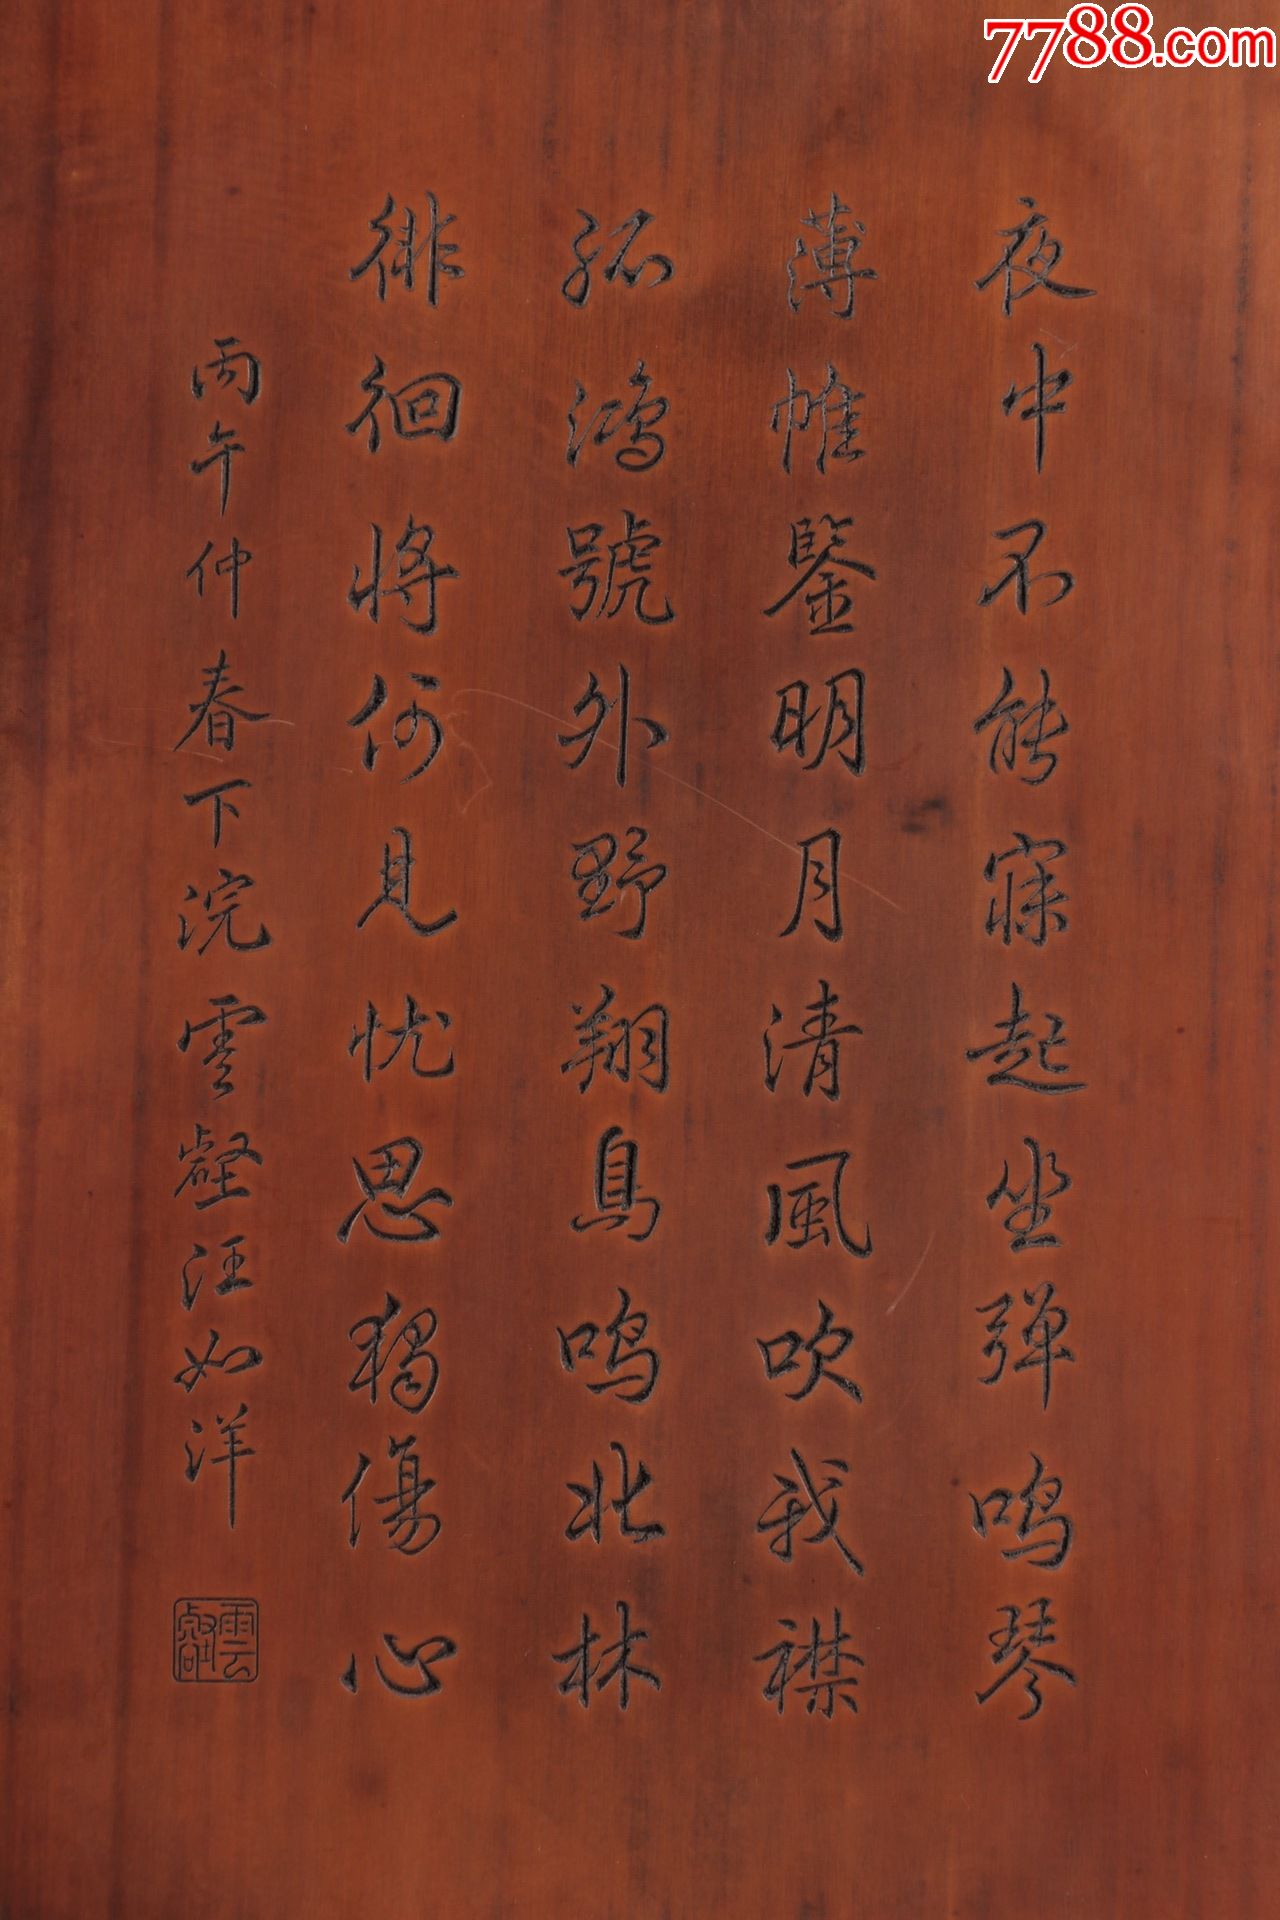 7788.com
夜中不能寐起坐弹鸣琴
薄帷鑒明月清風吹我襟
孤鴻號外野翔鳥鳴北林
徘徊將何見忧思獨傷心
丙午仲春下浣雲壑汪如洋
雲壑